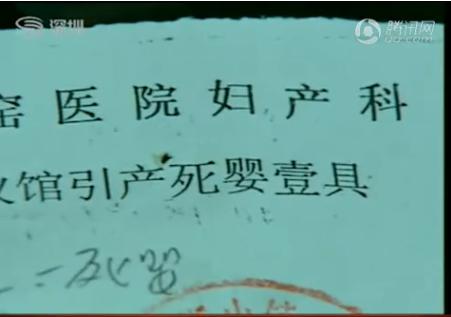 深圳 腾讯网
QQ.com
窑医院妇产科
仪馆引产死婴壹具
死婴